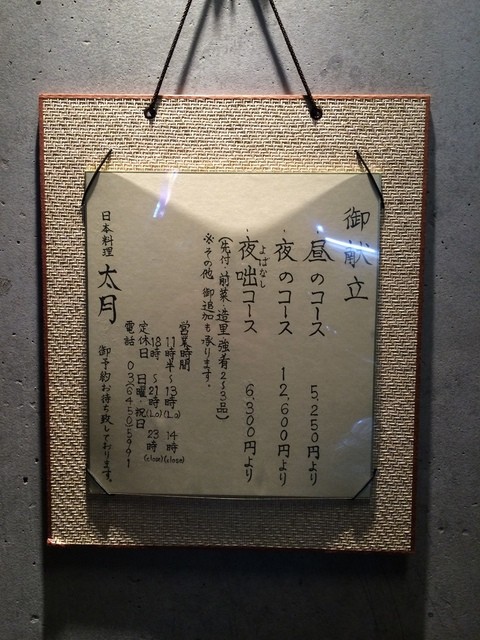 御献立
・昼のコース 5,250円より
・夜のコース 12,600円より
・夜咄コース 6,300円より
よばなし
(先付 前菜 造里 強肴2~3品)
※その他 御追加も承ります。
営業時間
11時半~13時(L.o) 14時(close)
18時~21時(L.o) 23時(close)
定休日 日曜・祝日
電話 03.6450.5991
日本料理 太月 御予約お待ち致しております。